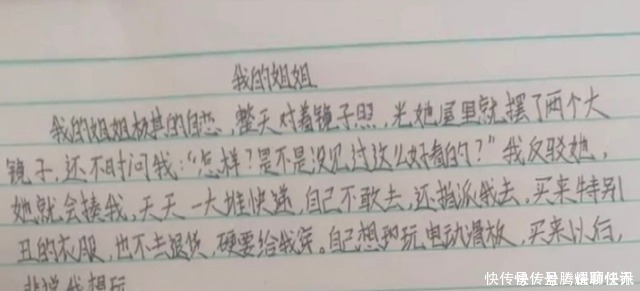 我的姐姐
我的姐姐极其的自恋，整天对着镜子照，光她屋里就摆了两个大
镜子，还不时问我：“怎样？是不是没见过这么好看的？”我反驳她，
她就会揍我，天天一大堆快递，自己不敢去，还指派我去，买来特别
丑的衣服，也不去退货，硬要给我穿。自己想玩电动滑板，买来以后，
非说我想玩
快传号